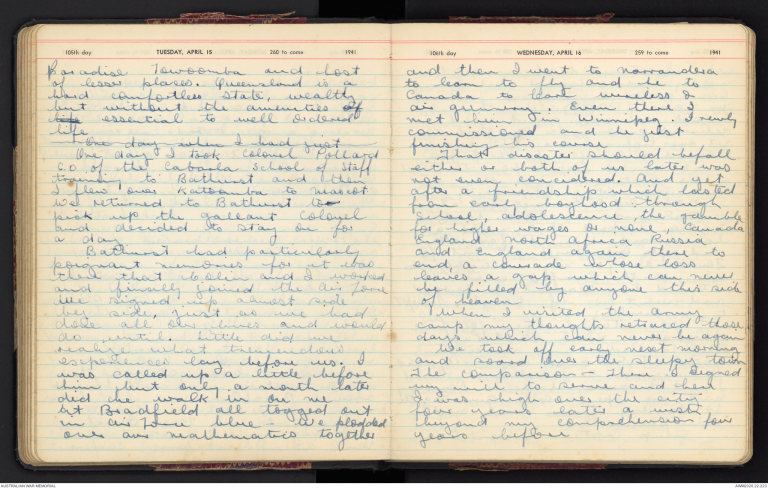 105th day TUESDAY, APRIL 15 260 to come 1941
Paradise Towoomba and host
of lesser places. Queensland is a
hard comfortless State, wealthy
but without the amenities of
life essential to well ordered
life.
One day when I had just
One day I took Colonel Pollard
C.O. of the Cabarla School of Staff
training to Bathurst and then
I flew over Katoomba to mascot
We returned to Bathurst to
pick up the gallant Colonel
and decided to stay on for
a day.
Bathurst had particularly
poignant memories for it was
there that and I worked
and finally joined the Air Force
We signed up almost side
by side, just as we had
done all our lives and would
do until. Little did we
realize what tremendous
experiences lay before us. I
was called up a little before
him but only a month later
did he walk in on me
at Bradfield all togged out
in air force blue - We plodded
over our mathematics together
106th day WEDNESDAY, APRIL 16 259 to come 1941
and then I went to narrandera
to learn to fly and he to
Canada to learn wireless &
air gunnery. Even there I
met him in Winnipeg. I newly
commissioned and he just
finishing his course
That disaster should befall
either or both of us later was
not even considered. And yet
after a friendship which lasted
from early boyhood through
School, adolescence, the gamble
for higher wages or none, Canada
England north Africa Russia
and England again there to
end, a comrade whose loss
leaves a gap which can never
be filled by anyone this side
of heaven
When I visited the army
camp my thoughts retraced those
days which can never be again
We took off early next morning
and soared over the sleepy town
The comparison - There I signed
my will to serve and here
I was high over the city
four years later a
beyond my comprehension four
years before
AUSTRALIAN WAR MEMORIAL